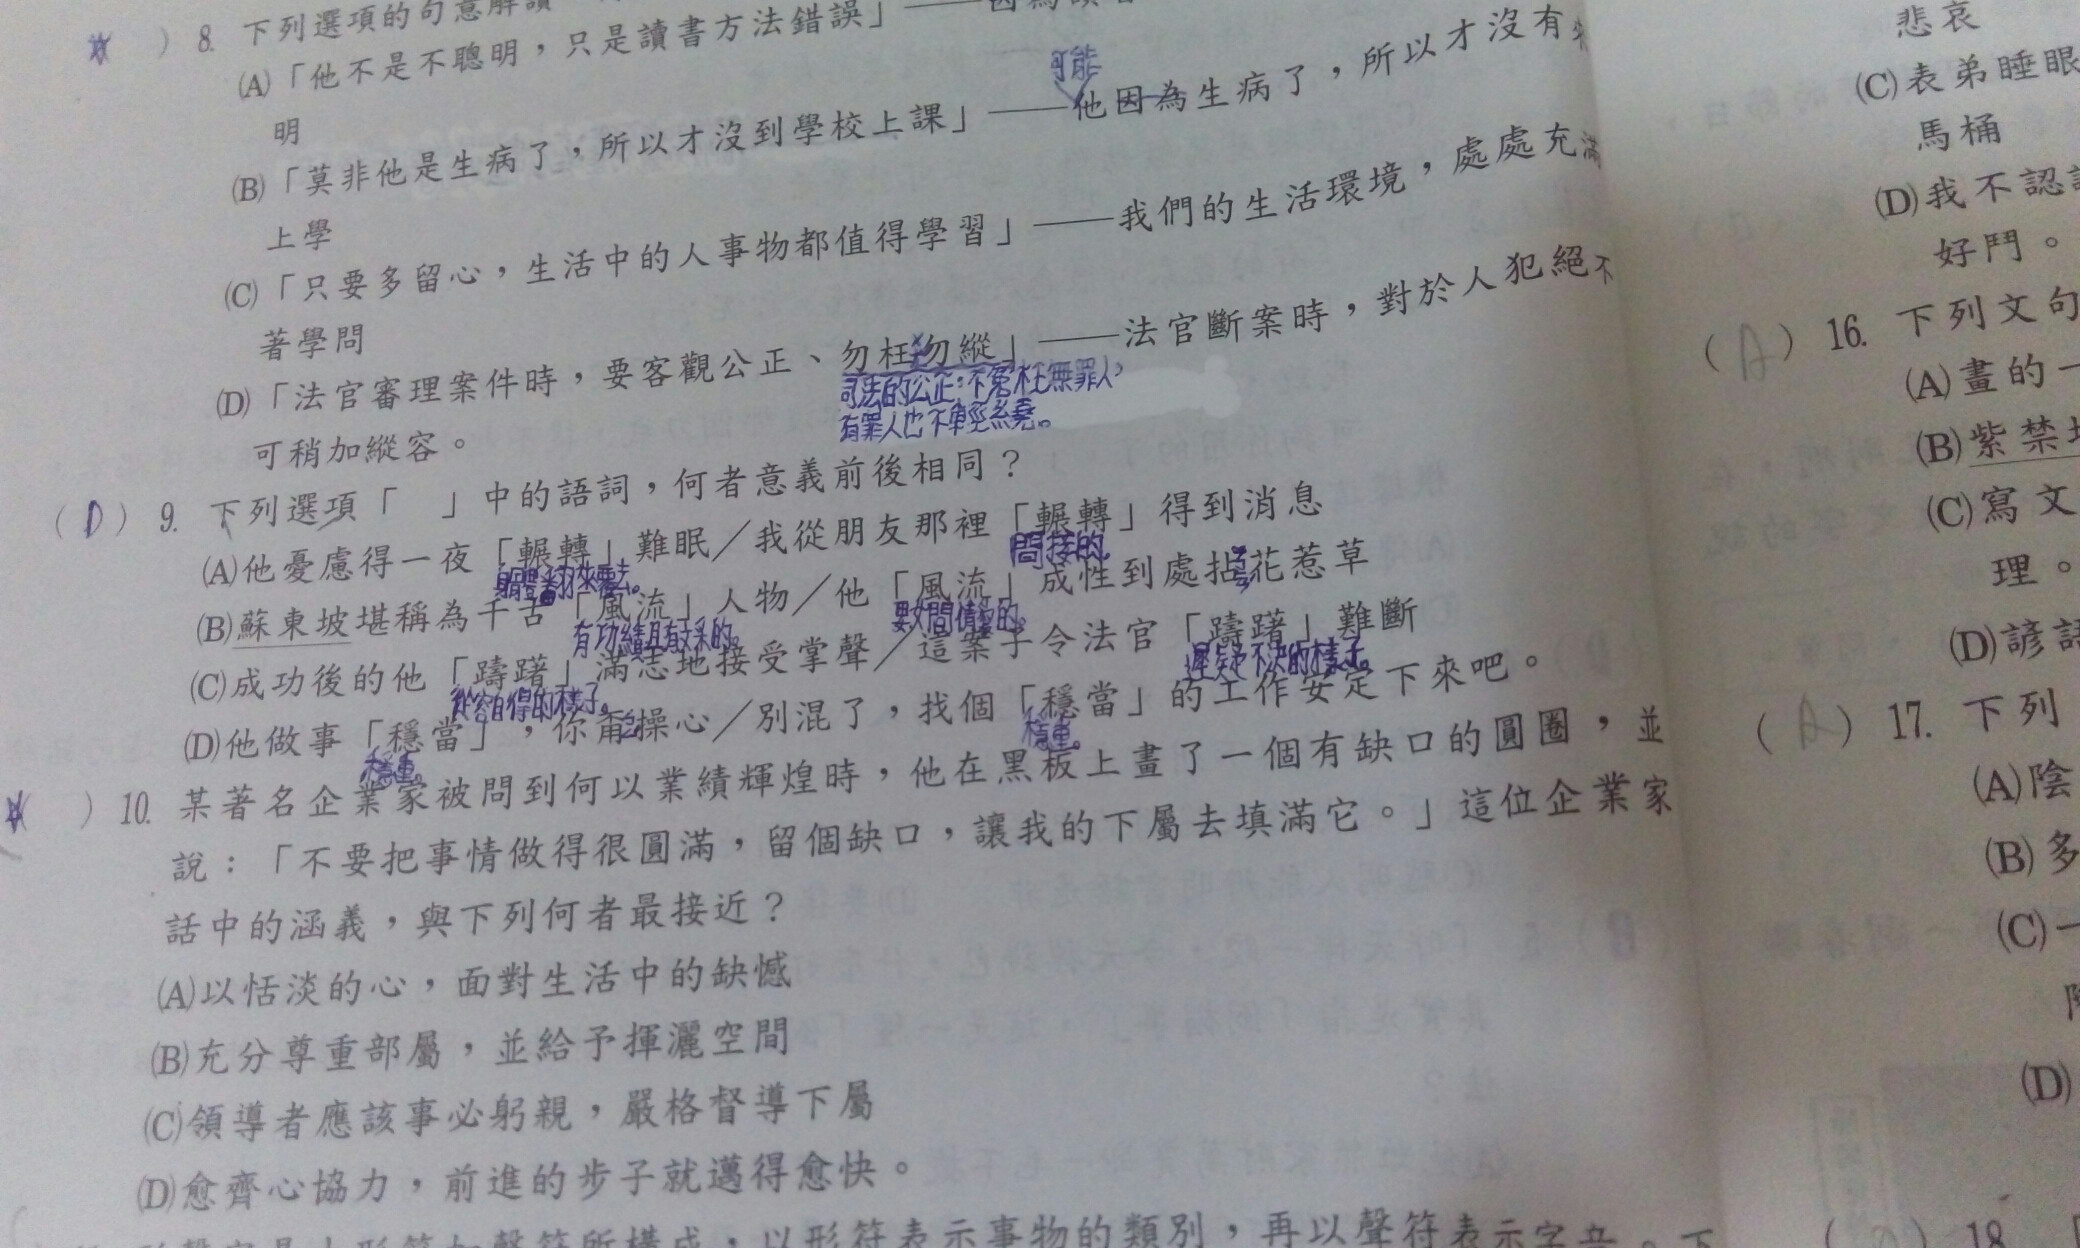 ) 8. 下列選項的句意解讀
(A)「他不是不聰明，只是讀書方法錯誤」——因為
明
可能
(B)「莫非他是生病了，所以才沒到學校上課」——他因為生病了，所以才沒有
上學
(C)「只要多留心，生活中的人事物都值得學習」——我們的生活環境，處處充滿
著學問
(D)「法官審理案件時，要客觀公正、勿枉勿縱」——法官斷案時，對於人犯絕不
司法的公正：不冤枉無罪人，
有罪人也不輕繞。
可稍加縱容。
(D) 9. 下列選項「 」中的語詞，何者意義前後相同？
(A)他憂慮得一夜「輾轉」難眠／我從朋友那裡「輾轉」得到消息
身體翻來覆去。 間接的。
(B)蘇東坡堪稱為千古「風流」人物／他「風流」成性到處拈花惹草
有功績且有文采的。 男女間情愛的。
(C)成功後的他「躊躇」滿志地接受掌聲／這案子令法官「躊躇」難斷
從容自得的樣子。 遲疑不決的樣子。
(D)他做事「穩當」，你甭操心／別混了，找個「穩當」的工作安定下來吧。
穩重。 穩重。
) 10. 某著名企業家被問到何以業績輝煌時，他在黑板上畫了一個有缺口的圓圈，並
說：「不要把事情做得很圓滿，留個缺口，讓我的下屬去填滿它。」這位企業家
話中的涵義，與下列何者最接近？
(A)以恬淡的心，面對生活中的缺憾
(B)充分尊重部屬，並給予揮灑空間
(C)領導者應該事必躬親，嚴格督導下屬
(D)愈齊心協力，前進的步子就邁得愈快。
形符加聲符所構成，以形符表示事物的類別，再以聲符表示字音。下
悲哀
(C)表弟睡眼
馬桶
(D)我不認
好鬥。
(A) 16. 下列文句
(A)畫的一
(B)紫禁
(C)寫文
理。
(D)諺語
(A) 17. 下列
(A)陰
(B)多
(C)一
(D)
18.